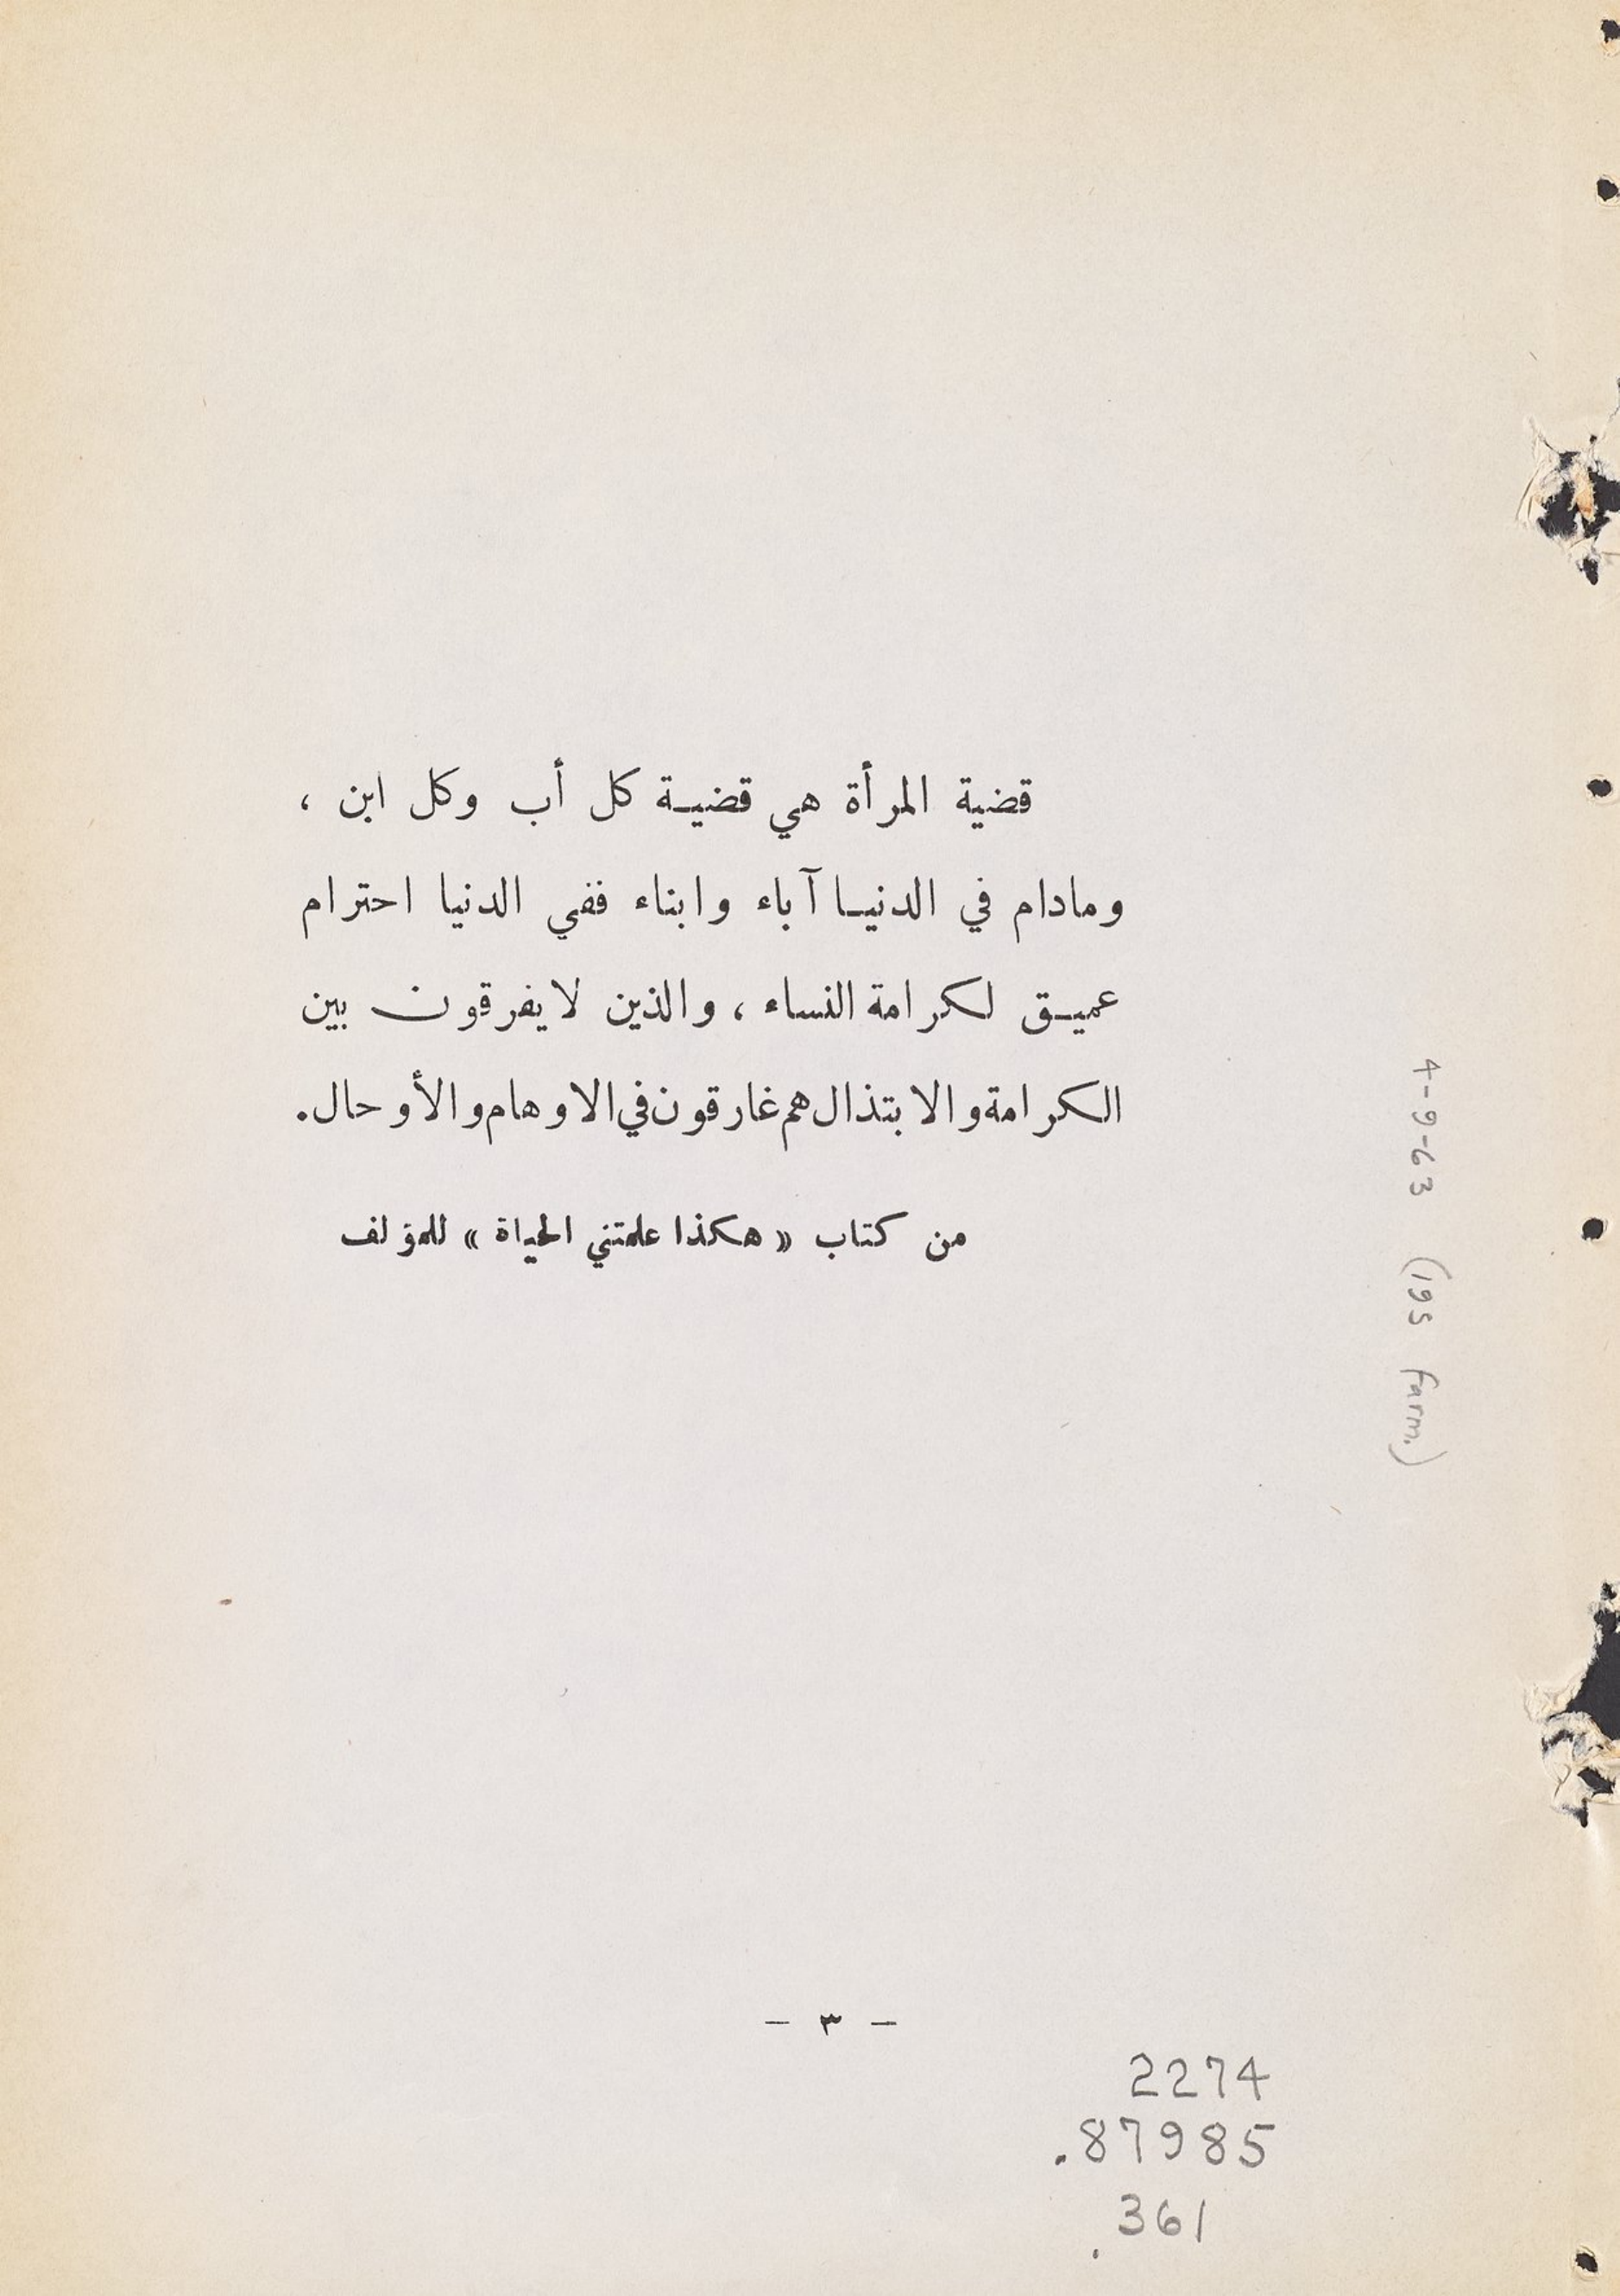 قضية المرأة هي قضيـة كل أب وكل ابن ،
ومادام في الدنيـا آباء وابناء ففي الدنيا احترام
عميـق لكرامة النساء ، والذين لا يفرقون بين
الكرامة والابتذال هم غارقون في الاوهام والأوحال.
من كتاب « هكذا علمتني الحياة » للمؤلف
4-9-63 (195 Farm.)
- ٣ -
2274
.87985
.361